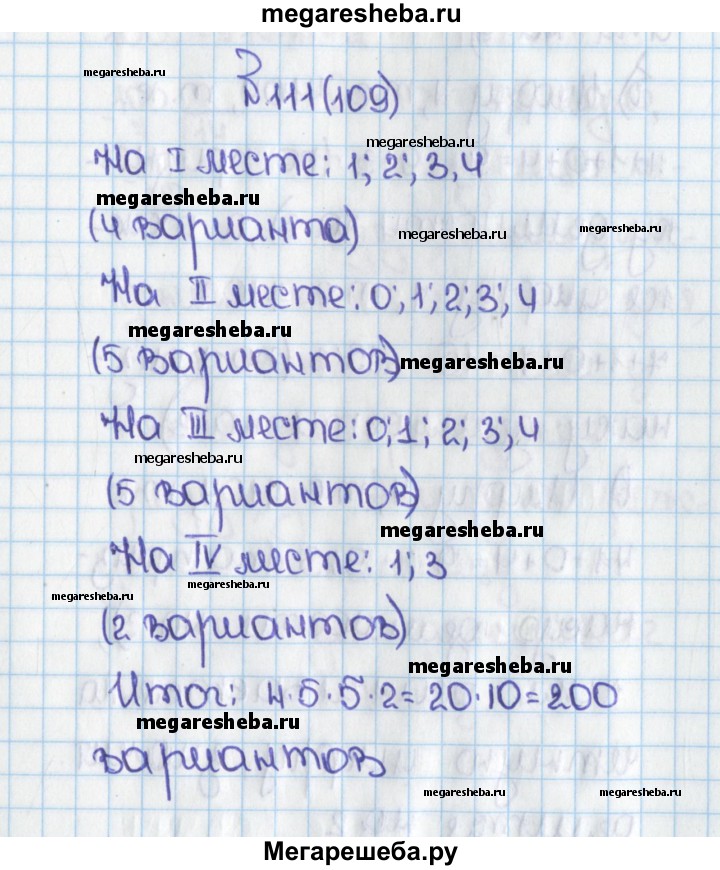 megaresheba.ru
megaresheba.ru
№111(109)
megaresheba.ru
На I месте: 1; 2; 3, 4
megaresheba.ru
(4 варианта)
megaresheba.ru
На II месте: 0; 1; 2; 3; 4
megaresheba.ru
(5 вариантов)
megaresheba.ru
На III месте: 0; 1; 2; 3; 4
megaresheba.ru
(5 вариантов)
megaresheba.ru
На IV месте: 1; 3
megaresheba.ru
megaresheba.ru
(2 вариантов)
megaresheba.ru
Итог: 4·5·5·2= 20·10=200
megaresheba.ru
вариантов
megaresheba.ru
megaresheba.ru
Мегарешеба.ру